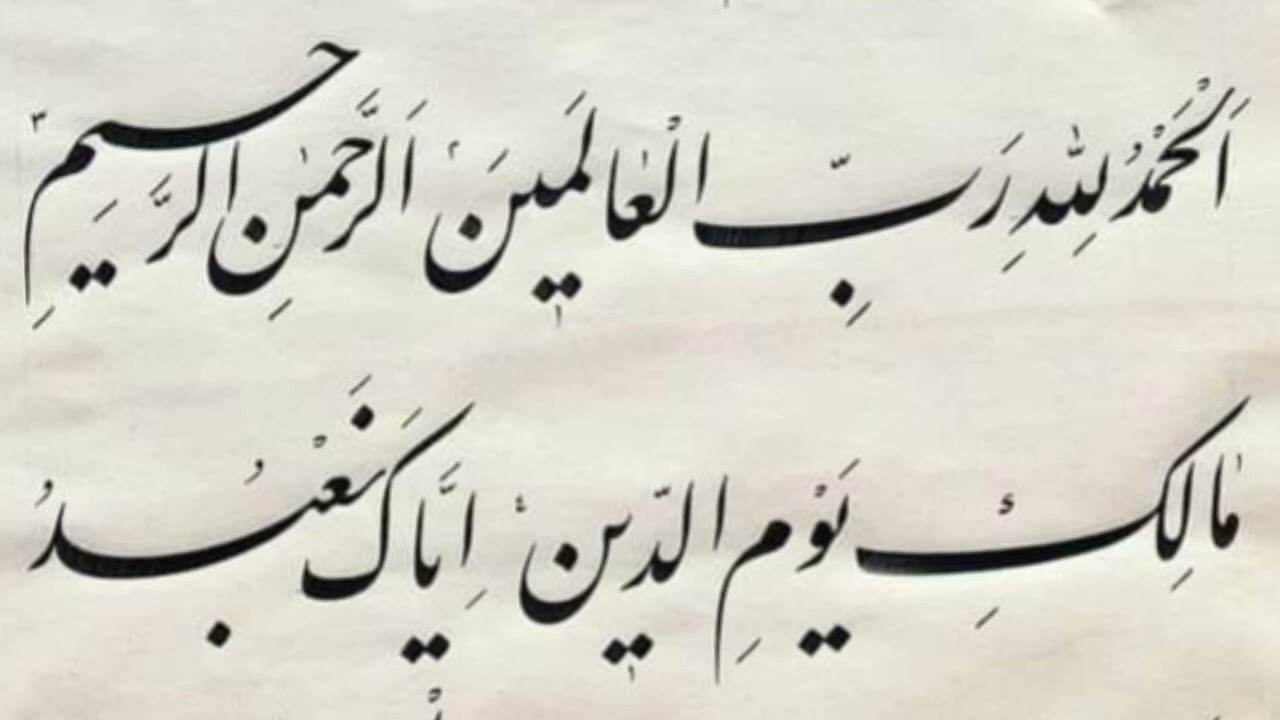 اَلْحَمْدُ لِلّٰهِ رَبِّ الْعٰالَمينَ اَلرَّحْمٰنِ الرَّحيمِ
مٰالِكِ يَوْمِ الدّينِ اِيَّاكَ نَعْبُدُ